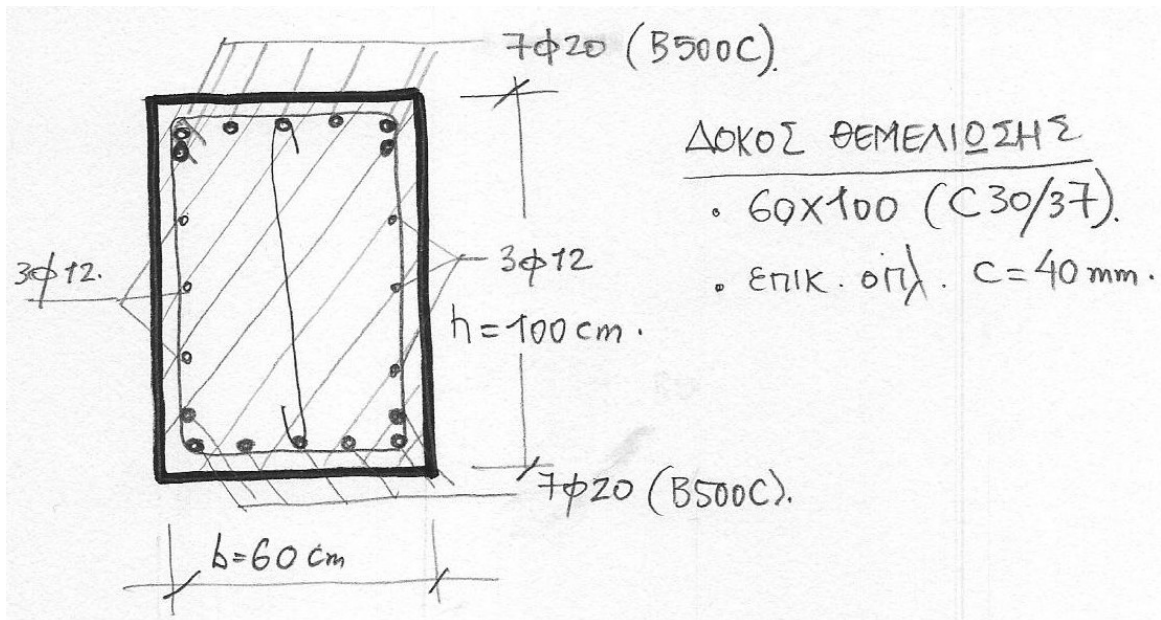 7ϕ20 (B500C).
ΔΟΚΟΣ ΘΕΜΕΛΙΩΣΗΣ
• 60X100 (C30/37).
• επικ. οπλ. C=40mm.
3ϕ12.
3ϕ12
h=100cm.
7ϕ20 (B500C).
b=60cm